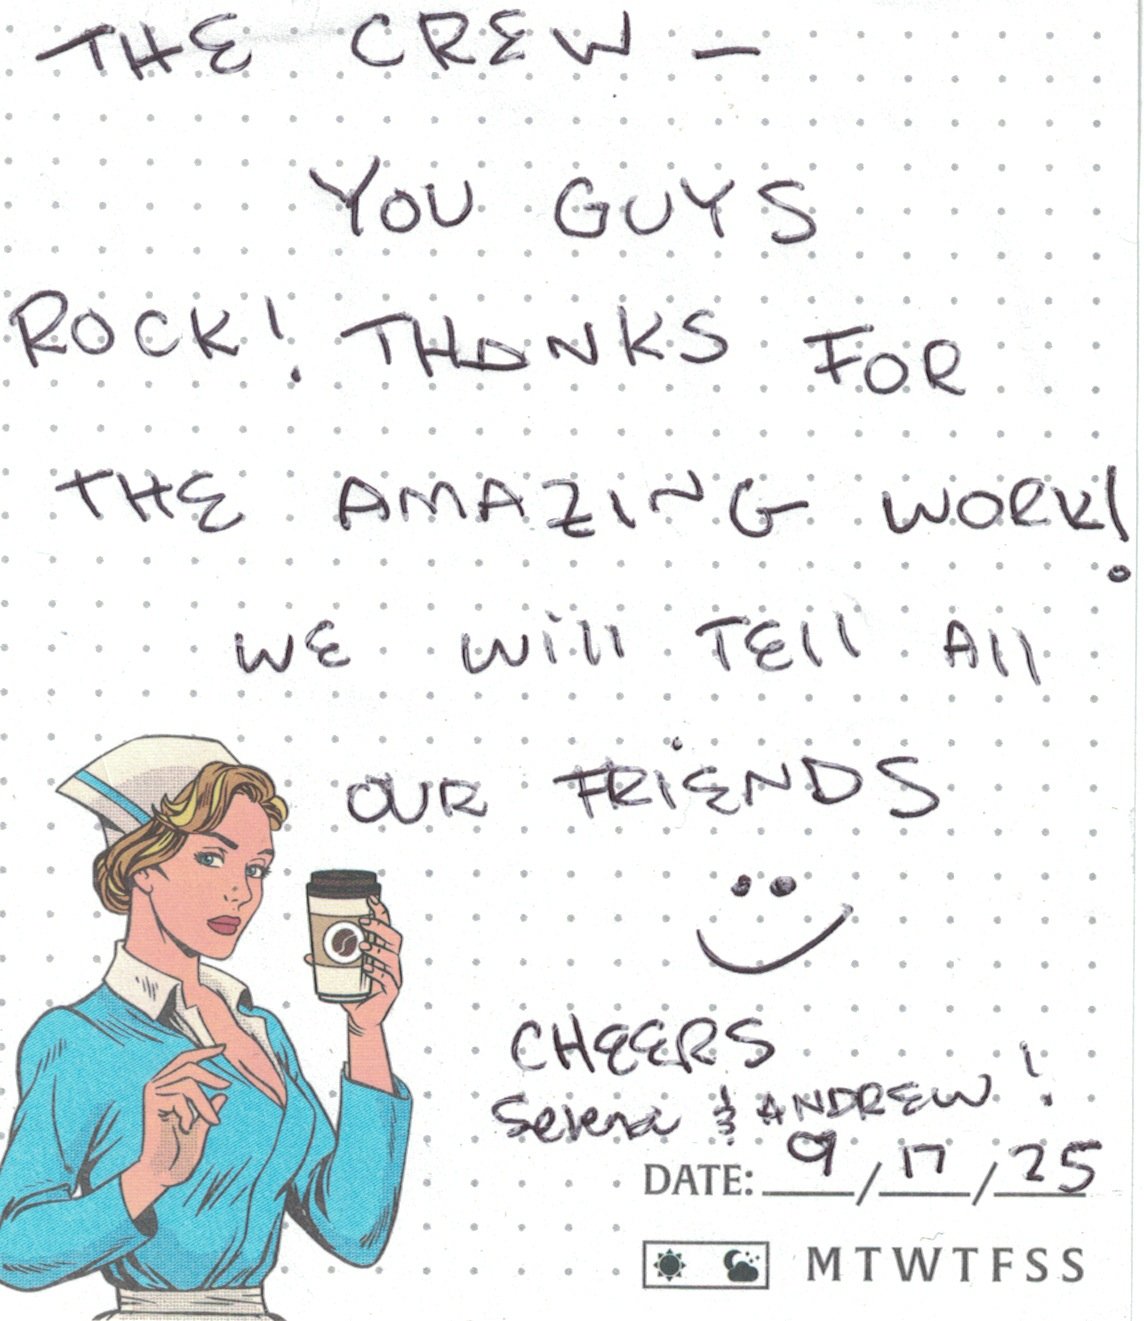 THE CREW —
YOU GUYS
ROCK! THANKS FOR
THE AMAZING WORK!
WE Will TEll All
OUR FRiENDS
CHEERS
Selena & ANDREW!
DATE: 9/17/25
M T W T F S S